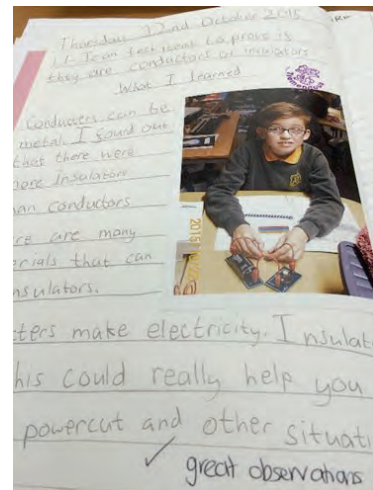 Thursday 22nd October 2015
L.I- I can test items to prove is
they are conductors or insulators
What I learned
Conducters can be
metal. I found out
that there were
more Insulators
han conductors
re are many
rials that can
nsulators.
cters make electricity. Insulat
his could really help you
powercut and other situati
✓ great observations
2015/10/22